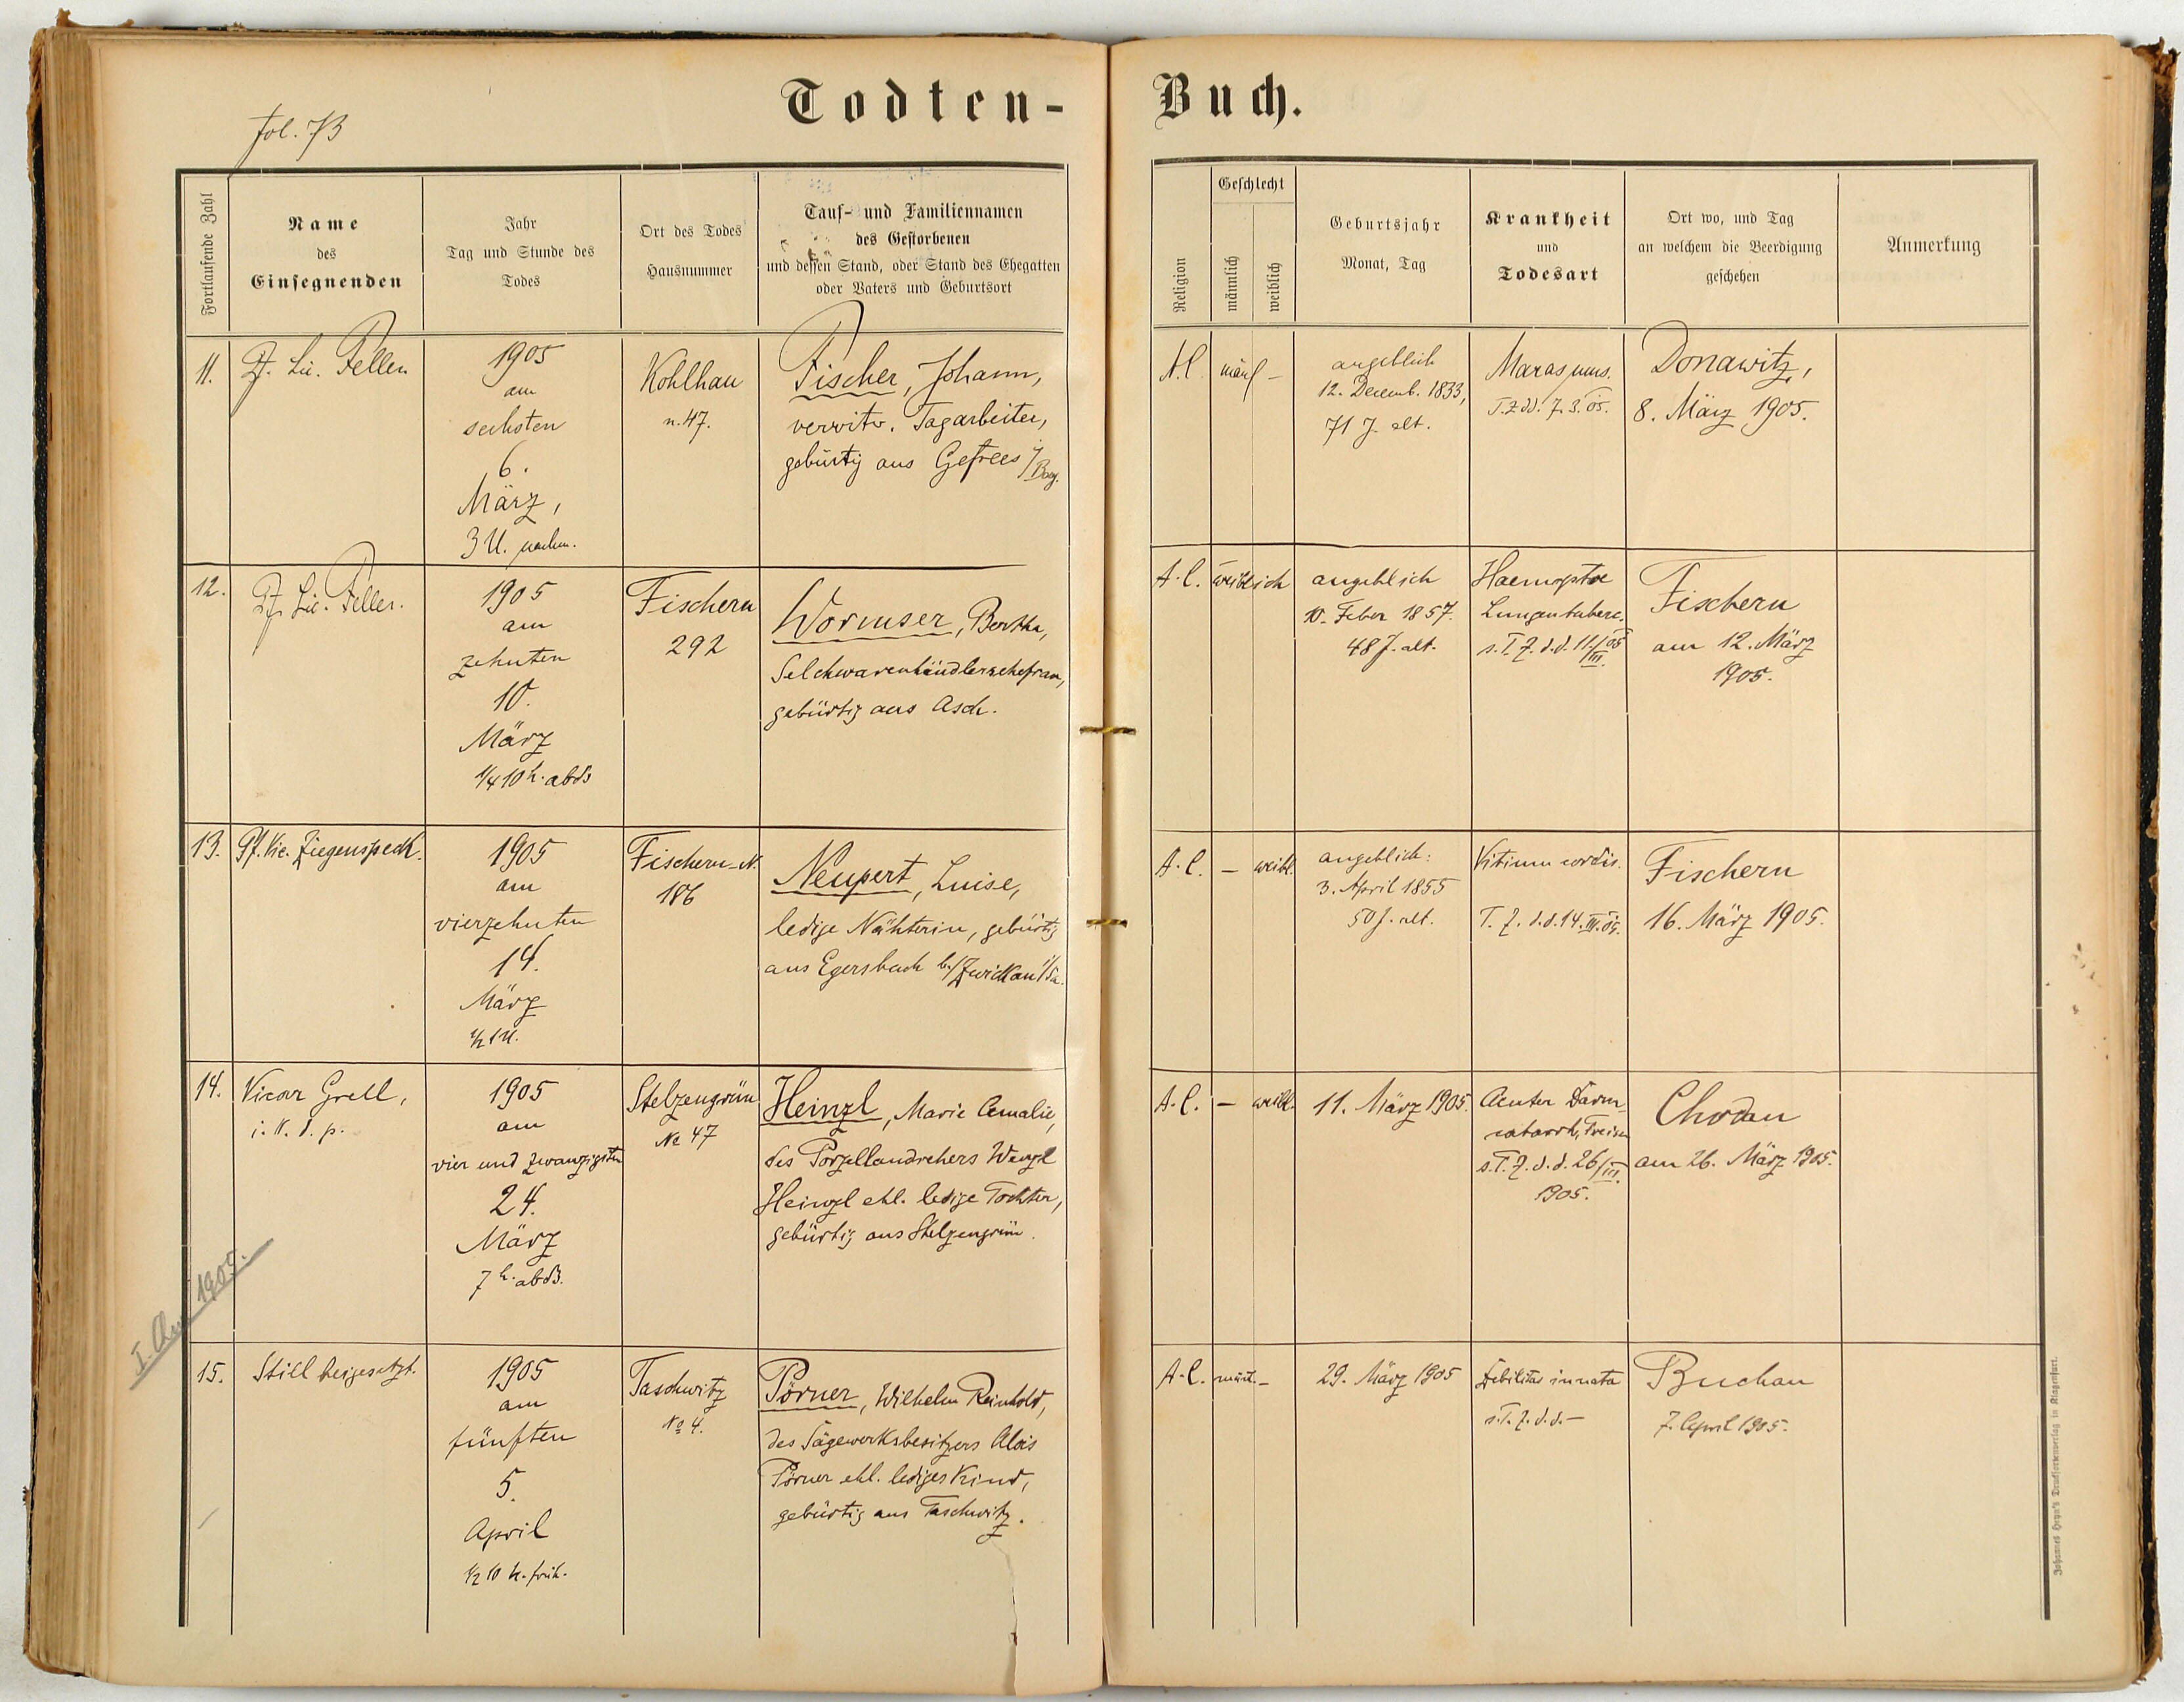 fol. 73
Todten-
Buch.
Fortlaufende Zahl
Name
des
Einsegnenden
Jahr
Tag und Stunde des
Todes
Ort des Todes
Hausnummer
Tauf- und Familiennamen
des Gestorbenen
und dessen Stand, oder Stand des Ehegatten
oder Vaters und Geburtsort
Religion
Geschlecht
männlich
weiblich
Geburtsjahr
Monat, Tag
Krankheit
und
Todesart
Ort wo, und Tag
an welchem die Beerdigung
geschehen
Anmerkung
11.
Pf. Lic. Feller
1905
am
sechsten
6.
März,
3 U. nachm.
Kohlhau
n. 47.
Fischer, Johann,
verwitw. Tagarbeiter,
gebürtig aus Gefrees i/Bay.
A.C.
männl –
angeblich
12. Decemb. 1833,
71 J. alt.
Marasmus.
T.Z. dd. 7.3.05.
Donawitz,
8. März 1905.
12.
Pf. Lic. Feller.
1905
am
zehnten
10.
März
1/4 10 h. abds
Fischern
292
Wormser, Bertha,
Selchwarenhändlersehefrau,
gebürtig aus Asch.
A.C.
weiblich
angeblich
10. Feber 1857.
48 J. alt.
Haemoptoe
Lungentuberc.
s. T. Z. d. d. 11./III 05
Fischern
am 12. März
1905.
13.
Pf. Vic. Ziegenspeck.
1905
am
vierzehnten
14.
März
1/2 1 U.
Fischern N.
186
Neupert, Luise,
ledige Nähterin, gebürtig
aus Egersbach b./Zwickau i/Sa.
A.C.
– weibl.
angeblich:
3. April 1855
50 J. alt.
Vitium cordis.
T. Z. d. d. 14. III. 05.
Fischern
16. März 1905.
14.
Vicar Grell,
i. V. d. p.
1905
am
vier und zwanzigsten
24.
März
7 h. abds.
Stelzengrün
No 47
Heinzl, Marie Amalie,
des Porzellandrehers Wenzl
Heinzl ehl. ledige Tochter,
gebürtig aus Stelzengrün.
A.C.
– weibl.
11. März 1905.
Acuter Darm-
catarrh, Fraisen
s. T. Z. d. d. 26/III.
1905.
Chodau
am 26. März 1905.
15.
Still beigesetzt.
1905
am
fünften
5.
April
1/2 10 h. früh.
Taschwitz
No 4.
Pörner, Wilhelm Reinhold,
des Sägewerksbesitzers Alois
Pörner ehl. lediges Kind,
gebürtig aus Taschwitz.
A.C.
männl. –
29. März 1905
Debilitas innata
s. T. Z. d. d. –
Buchau
7. April 1905.
I. Qu. 1905.
Johannes Heyn's Drucksortenverlag in Klagenfurt.